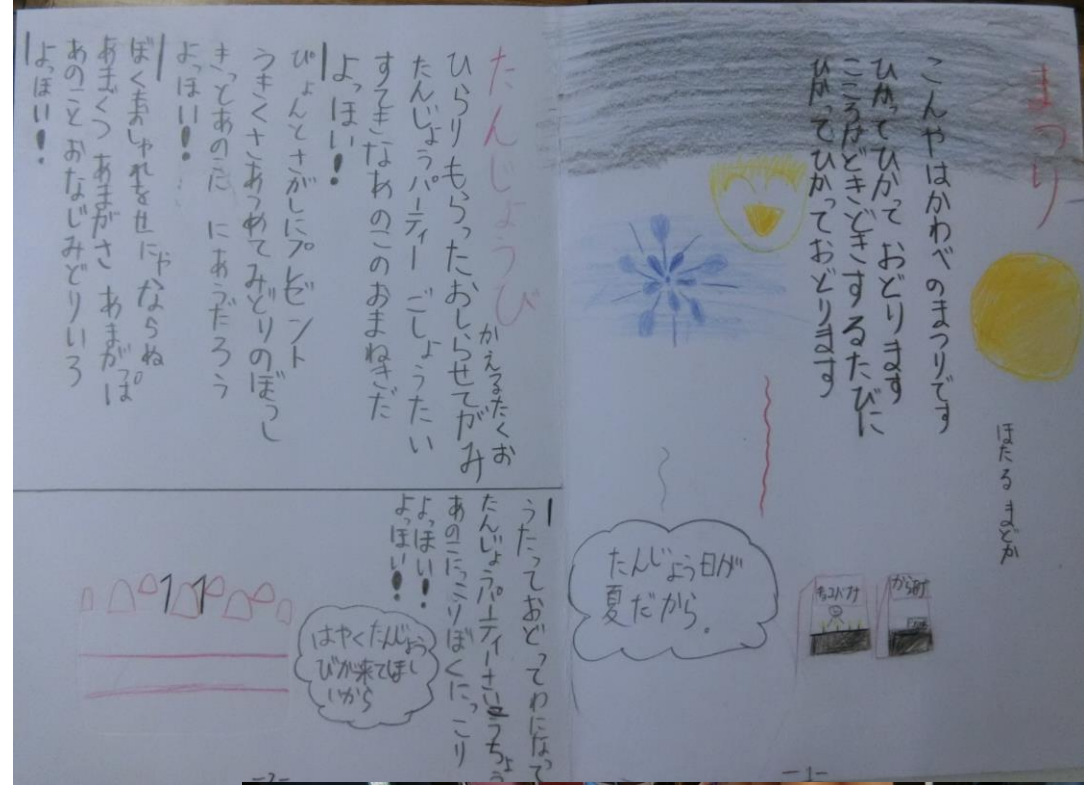 まつり
ほたる まどか
こんやはかわべのまつりです
ひかってひかって おどります
こころがどきどきするたびに
ひかってひかっておどります
たんじょう日が
夏だから。
チョコバナナ
から揚げ
-1-
たんじょうび
かえるたくお
ひらりもらったおしらせてがみ
たんじょうパーティー ごしょうたい
すてきなあのこのおまねきだ
よっほい!
ぴょんとさがしにプレゼント
うきくさあつめてみどりのぼうし
きっとあのこ にあうだろう
よっほい!
ぼくもおしゃれをせにゃならぬ
あまぐつ あまがさ あまがっぱ
あのことおなじみどりいろ
よっほい!
うたっておどってわになって
たんじょうパーティーさいこうちょう
あのこにっこりぼくにっこり
よっほい!
よっほい!
はやくたんじょう
びが来てほし
いから
11
-2-